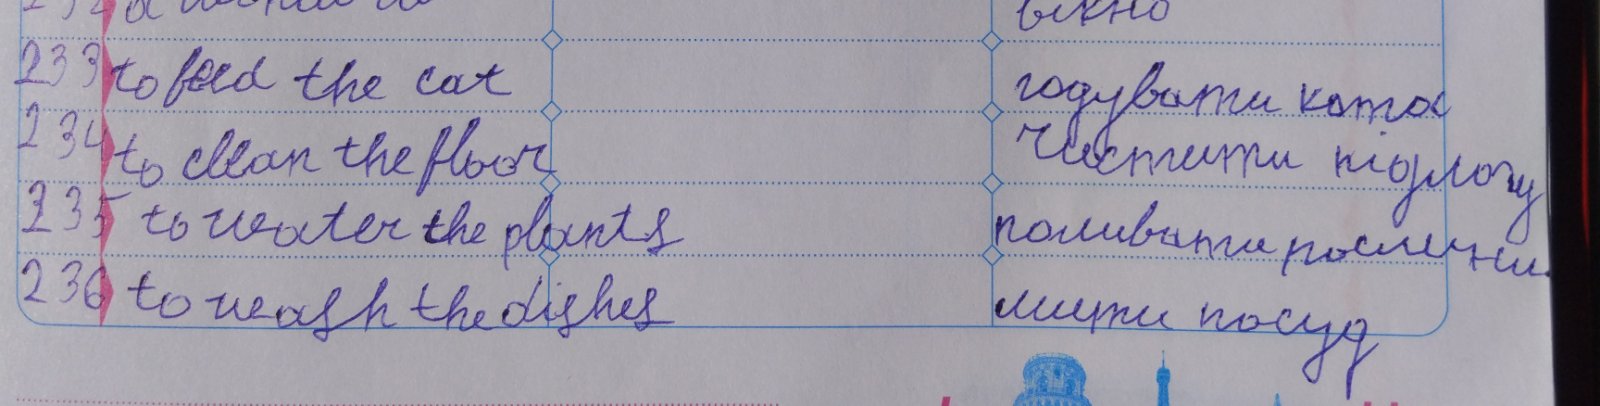 232 a window вікно
233 to feed the cat годувати кота
234 to clean the floor Чистити підлогу
235 to water the plants поливати рослини
236 to wash the dishes мити посуд